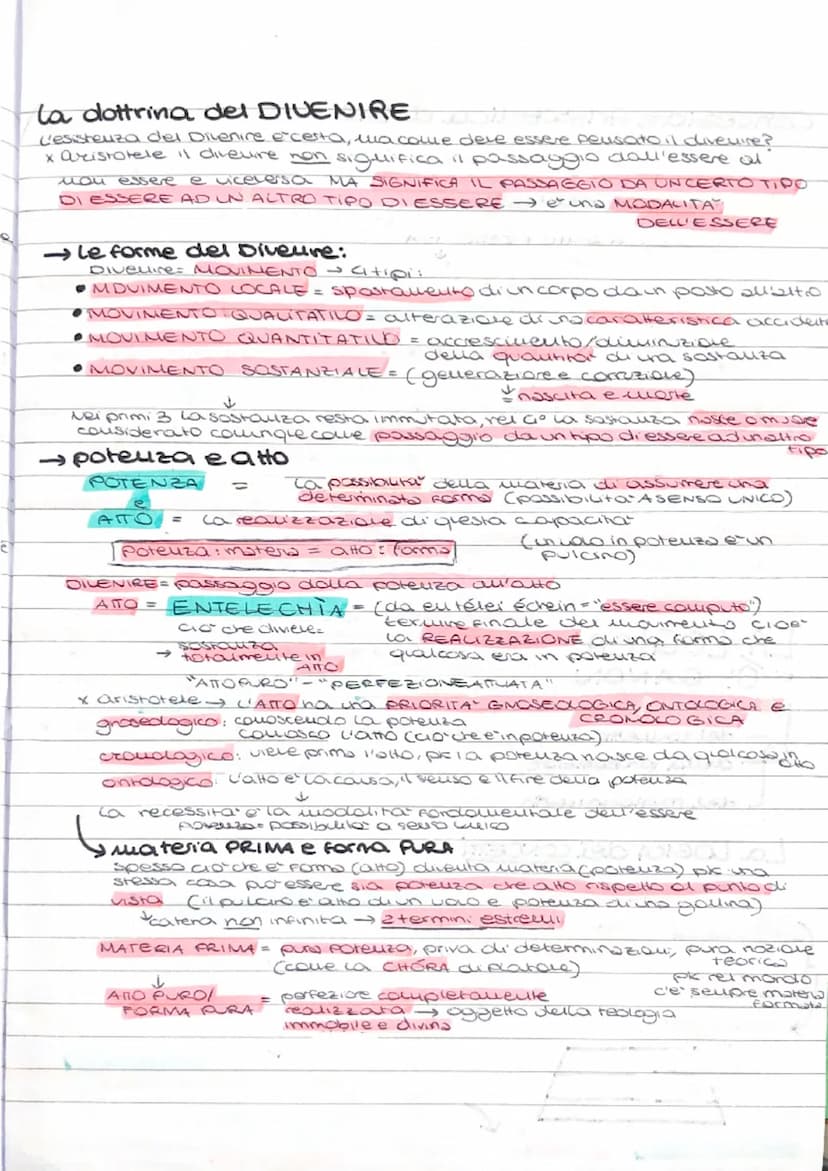 La dottrina del DIVENIRE
L'esistenza del Divenire è certa, ma come deve essere pensato il divenire?
x aristotele il divenire non significa il passaggio dall'essere al
non essere e viceversa MA SIGNIFICA IL PASSAGGIO DA UN CERTO TIPO
DI ESSERE AD UN ALTRO TIPO DI ESSERE → è una MODALITÀ
DELL'ESSERE
→ Le forme del Divenire:
Divenire= MOVIMENTO → 4 tipi:
• MOVIMENTO LOCALE = spostamento di un corpo da un posto all'altro
• MOVIMENTO QUALITATIVO = alterazione di una caratteristica accident
• MOVIMENTO QUANTITATIVO = accrescimento/diminuzione
della quantità di una sostanza
• MOVIMENTO SOSTANZIALE = (generazione e corruzione)
↓
= nascita e morte
↓
Nei primi 3 la sostanza resta immutata, nel 4° la sostanza nasce o muore
considerato comunque come passaggio da un tipo di essere ad un altro
tipo
→ potenza e atto
POTENZA = La possibilità della materia di assumere una
determinata forma (possibilità A SENSO UNICO)
e
ATTO = La realizzazione di questa capacità
(un uovo in potenza è un
pulcino)
potenza : materia = atto : forma
DIVENIRE = passaggio dalla potenza all'atto
ATTO = ENTELECHÌA = (da en télei échein = "essere compiuto")
ciò che diviene= termine finale del movimento cioè
La REALIZZAZIONE di una forma che
→ sostanza
totalmente in qualcosa era in potenza
ATTO
"ATTO PURO" - "PERFEZIONE ATTUATA"
x aristotele → L'ATTO ha una PRIORITÀ GNOSEOLOGICA, ONTOLOGICA e
CRONOLOGICA
gnoseologica: conoscendo la potenza
conosco l'atto (ciò che è in potenza)
cronologico: viene prima l'atto, pk la potenza nasce da qualcosa in
atto
ontologico: l'atto è la causa, il senso e il fine della potenza
↓
La necessità è la modalità fondamentale dell'essere
potenza = possibilità a senso unico
↳ materia PRIMA e forma PURA
spesso ciò che è forma (atto) diventa materia (potenza) pk una
stessa cosa può essere sia potenza che atto rispetto al punto di
vista (il pulcino è atto di un uovo e potenza di una gallina)
↓catena non infinita → 2 termini estremi
MATERIA PRIMA = pura potenza, priva di determinazioni, pura nozione
teorica
(come la CHÓRA di Platone)
pk nel mondo
c'è sempre materia
formata
↓
ATTO PURO/ = perfezione completamente
FORMA PURA realizzata → oggetto della teologia
immobile e divina